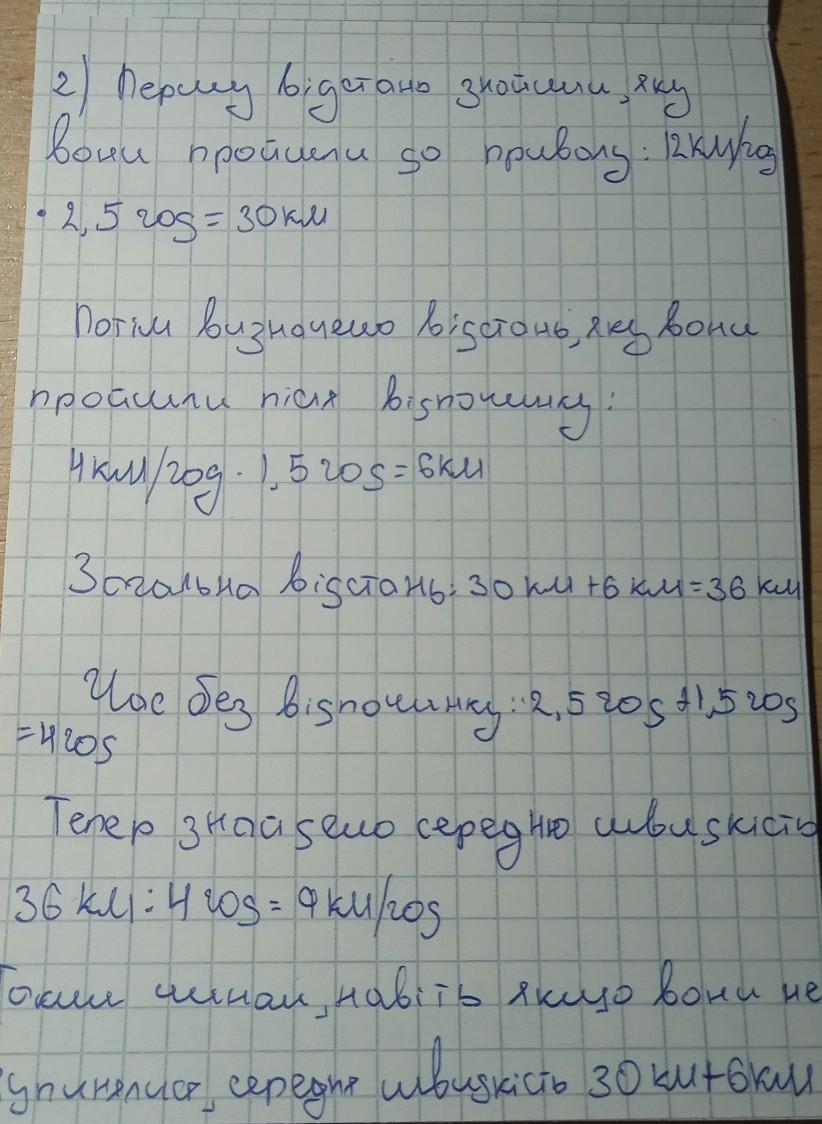 2) Першу відстань знайшли, яку
вони пройшли до привалу: 12км/год
· 2,5 год = 30 км
Потім визначемо відстань, яку вони
пройшли після відпочинку:
4 км/год · 1,5 год = 6 км
Загальна відстань: 30 км + 6 км = 36 км
Час без відпочинку: 2,5 год + 1,5 год
= 4 год
Тепер знайдемо середню швидкість
36 км : 4 год = 9 км/год
Таким чином, навіть якщо вони не
упинялися, середня швидкість 30 км + 6 км